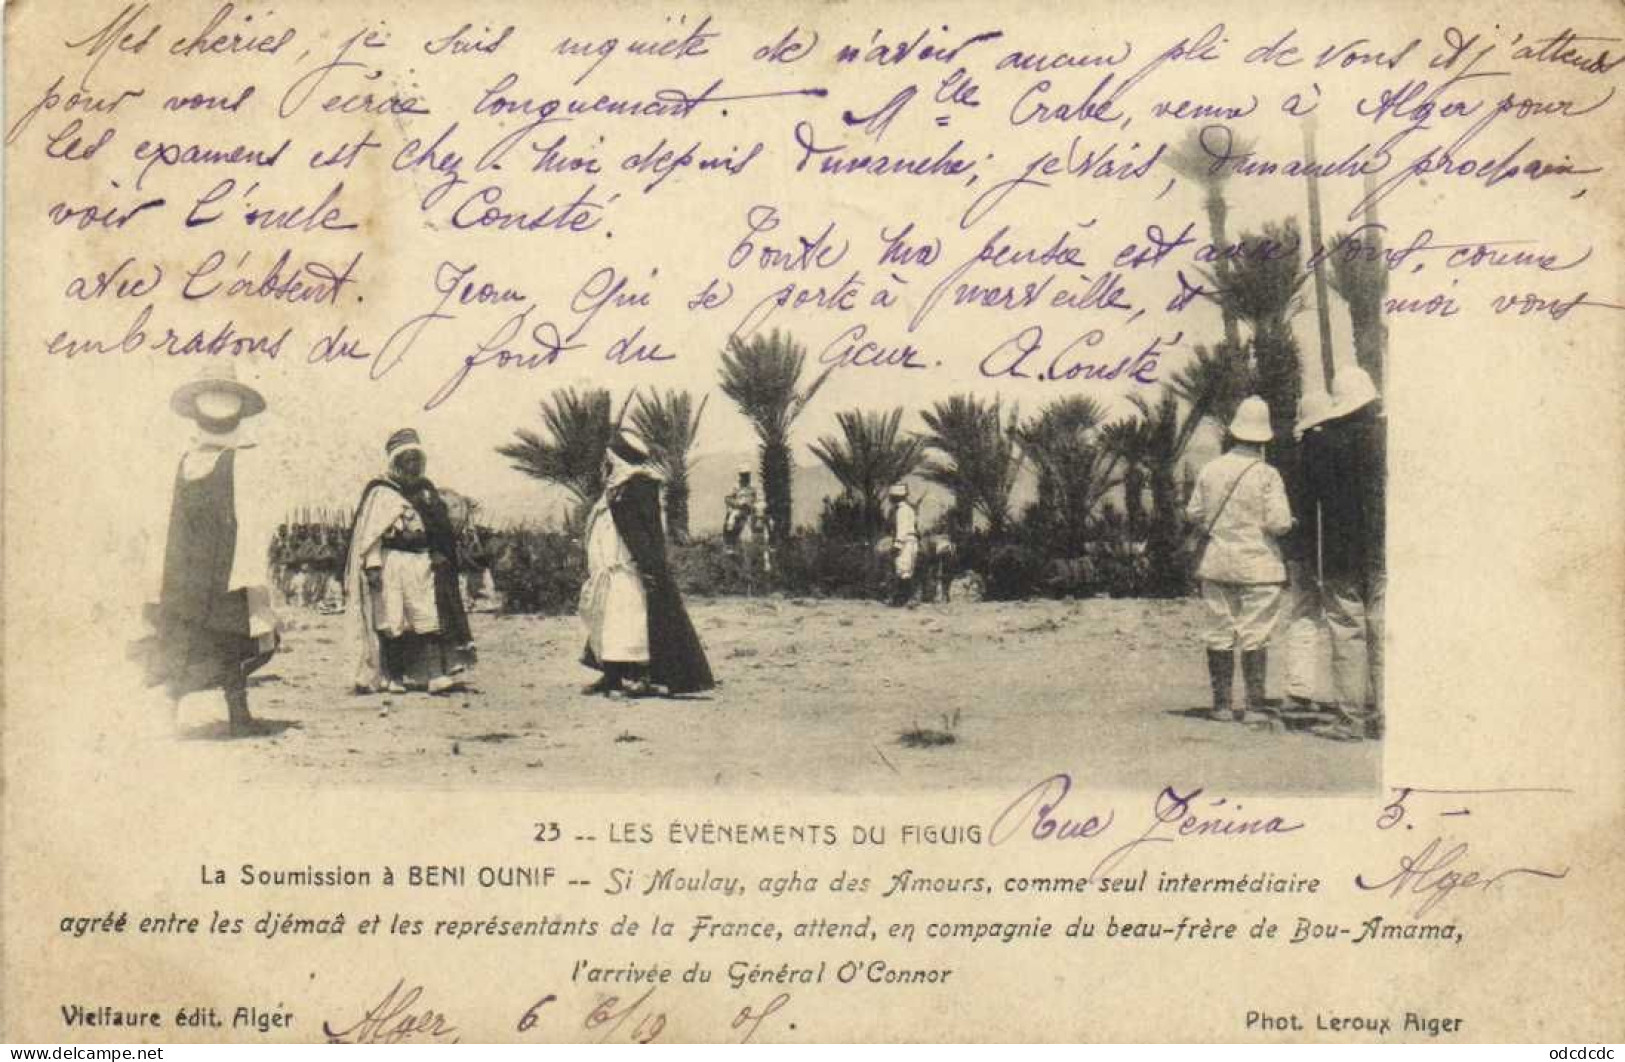 Mes chéries, je suis inquiète de n'avoir aucun pli de vous et j'attends
pour vous écrire longuement. — Mlle Crabe, venue à Alger pour
les examens est chez moi depuis Dimanche; je vais, Dimanche prochain,
voir l'oncle Consté. Toute ma pensée est avec vous, comme
avec l'absent. Jean, qui se porte à merveille, et moi vous
embrassons du fond du Cœur. A. Consté
23 -- LES ÉVÉNEMENTS DU FIGUIG
Rue Jénina 5. —
Alger
La Soumission à BENI OUNIF -- Si Moulay, agha des Amours, comme seul intermédiaire
agréé entre les djémaâ et les représentants de la France, attend, en compagnie du beau-frère de Bou-Amama,
l'arrivée du Général O'Connor
Vielfaure édit. Alger
Alger, 6
Phot. Leroux Alger
odcdcdc